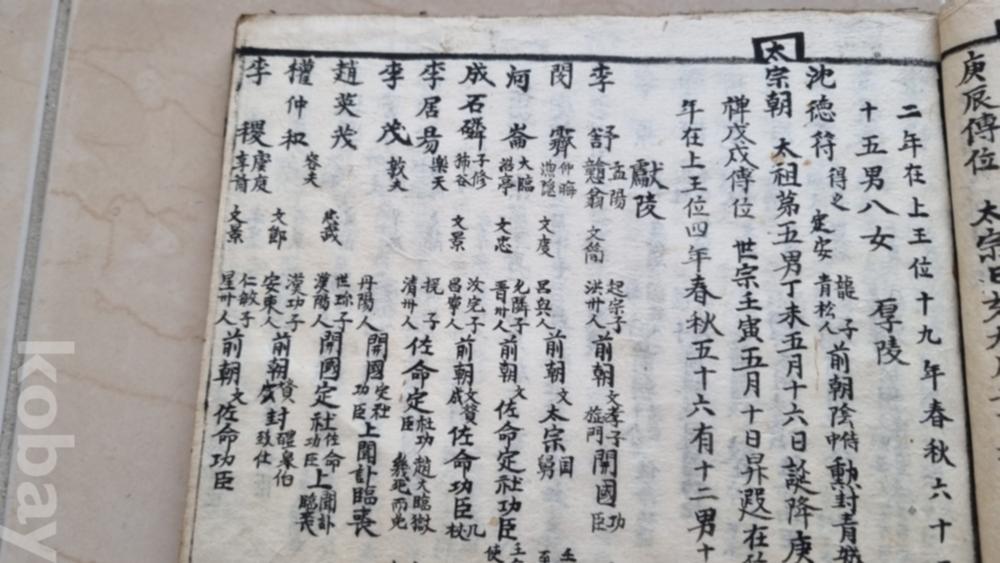 庚辰傳位 太宗
二年在上王位十九年春秋六十
十五男八女 厚陵
沈德符 得之 定安 龍子 青松人 前朝陰 侍中 勳封青城
太宗朝 太祖第五男丁未五月十六日誕降庚
禪戊戌傳位 世宗壬寅五月十日昇遐在
年在上王位四年春秋五十六有十二男十
獻陵
李舒 孟陽 戇翁 文簡 起宗子 洪州人 前朝文 孝子 旌門 開國功臣
閔霽 仲晦 漁隱 文度 呂興人 前朝文 太宗國舅
河崙 大臨 浩亭 文忠 允隣子 晋州人 前朝文 佐命定社功臣
成石磷 子修 文景 汝完子 昌寧人 前朝文 佐命功臣 几杖
李居易 樂天 清州人 佐命定社功臣
李茂 敦夫 丹陽人 開國 定社功臣 上聞訃臨喪
趙英茂 忠武 世珎子 漢陽人 開國定社 佐命功臣 上聞訃臨喪
權仲和 容夫 文節 漢功子 安東人 前朝 封醴泉伯 致仕
李稷 虞庭 亨齋 文景 仁敏子 星州人 前朝文 佐命功臣
kobay